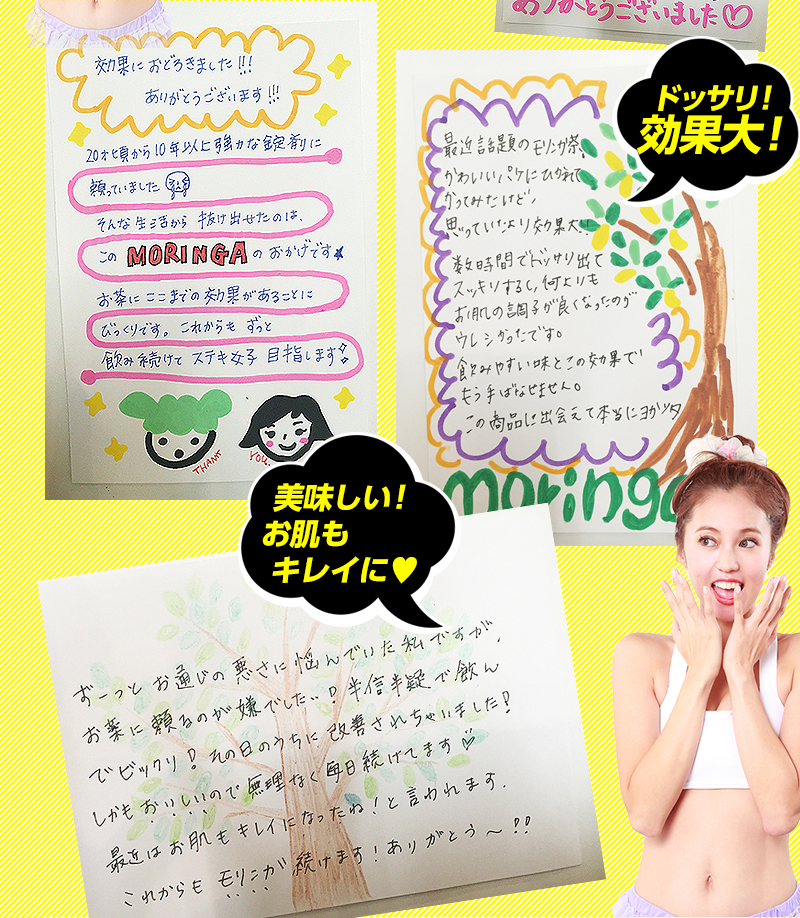 ありがとうございました♡
効果におどろきました!!!
ありがとうございます!!!
20才頃から10年以上強力な錠剤に
頼っていました
そんな生活から 抜け出せたのは、
この MORINGA のおかげです★
お茶にここまでの効果があることに
びっくりです。これからも ずっと
飲み続けて ステキ女子 目指します!
THANK YOU.
ドッサリ!
効果大!
最近話題のモリンガ茶、
かわいいパケにひかれて
かってみたけど、
思っていたより効果大!!
数時間でドッサリ出て
スッキリするし、何よりも
お肌の調子が良くなったのが
ウレシかったです。
飲みやすい味とこの効果で
もう手ばなせません。
この商品に出会えて本当にヨカッタ
moringa
美味しい!
お肌も
キレイに♥
ずーっと お通じの悪さに悩んでいた私ですが、
お薬に頼るのが嫌でした..!半信半疑で飲ん
でビックリ!その日のうちに改善されちゃいました!
しかもおいしいので無理なく毎日続けてます♡
最近はお肌もキレイになったね!と言われます.
これからも モリンガ 続けます!ありがとう〜!!